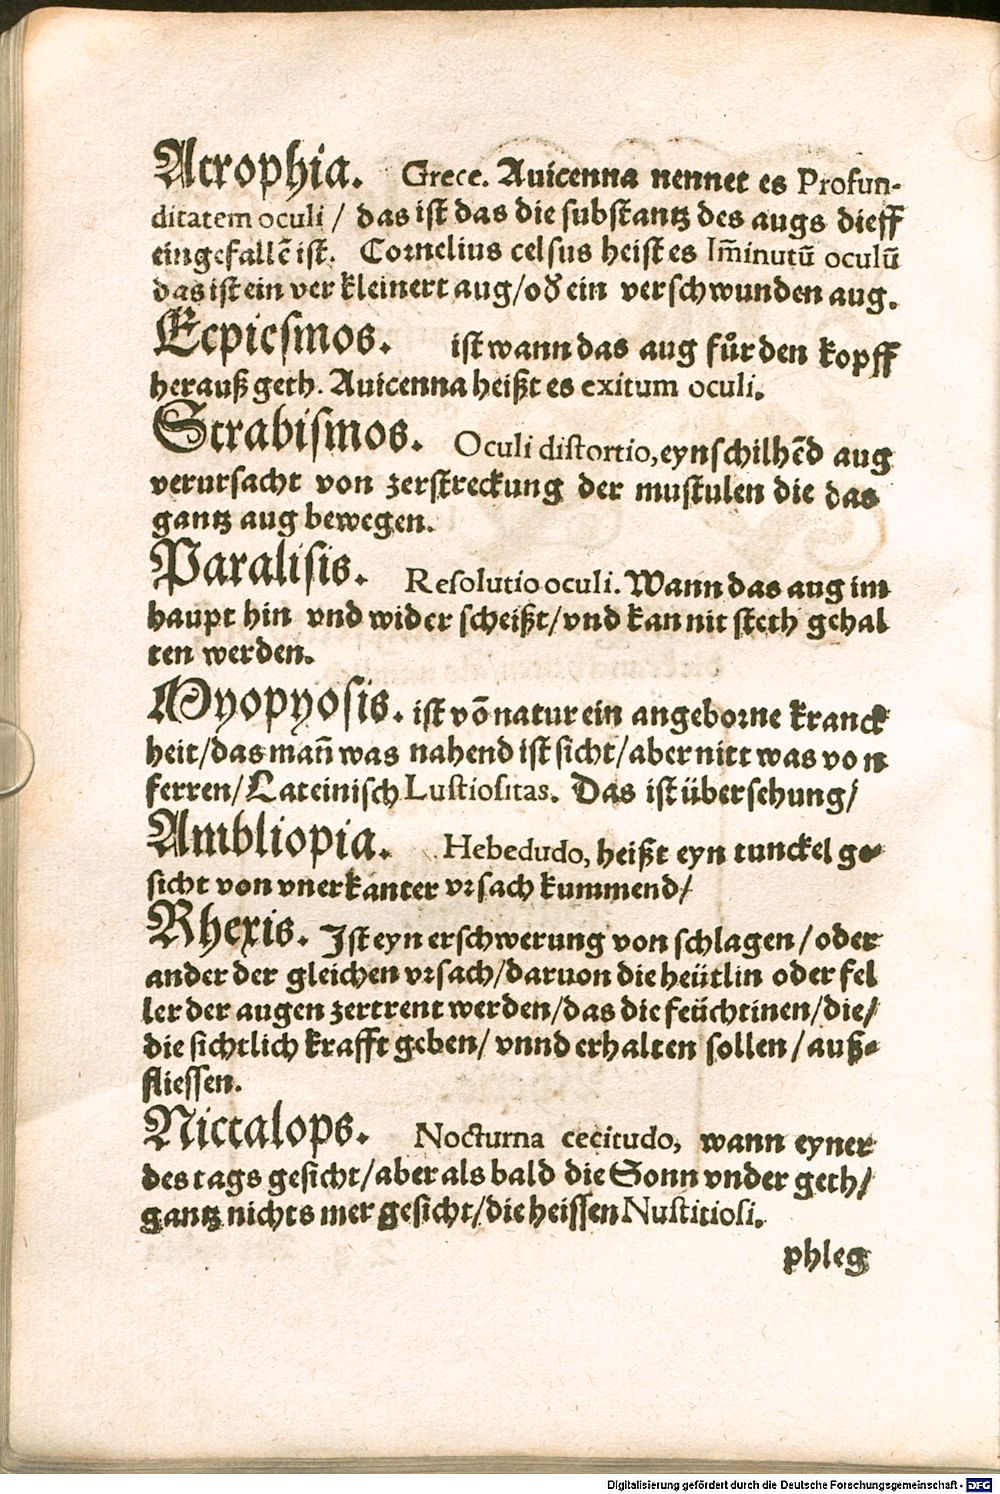 Atrophia. Grece. Auicenna nennet es Profun-
ditatem oculi / das ist das die substantz des augs dieff
eingefallẽ ist. Cornelius celsus heist es Im̃inutũ oculũ
das ist ein verkleinert aug/oď ein verschwunden aug.
Ecpiesmos. ist wann das aug fůr den kopff
herauß geth. Auicenna heißt es exitum oculi.
Strabismos. Oculi distortio, eyn schilhẽd aug
verursacht von zerstreckung der muskulen die das
gantz aug bewegen.
Paralisis. Resolutio oculi. Wann das aug im
haupt hin vnd wider scheißt/vnd kan nit steth gehal
ten werden.
Myopyosis. ist võ natur ein angeborne kranck
heit/das mañ was nahend ist sicht/aber nitt was von
ferren/Lateinisch Lustiositas. Das ist übersehung/
Ambliopia. Hebedudo, heißt eyn tunckel ge⸗
sicht von vnerkanter vrsach kummend/
Rhexis. Ist eyn erschwerung von schlagen/oder
ander der gleichen vrsach/daruon die heütlin oder fel
ler der augen zertrent werden/das die feüchtinen/die/
die sichtlich krafft geben/ vnnd erhalten sollen/auß⸗
fliessen.
Nictalops. Nocturna cecitudo, wann eyner
des tags gesicht/aber als bald die Sonn vnder geth/
gantz nichts mer gesicht/die heissen Nustitiosi.
phleg
Digitalisierung gefördert durch die Deutsche Forschungsgemeinschaft - DFG